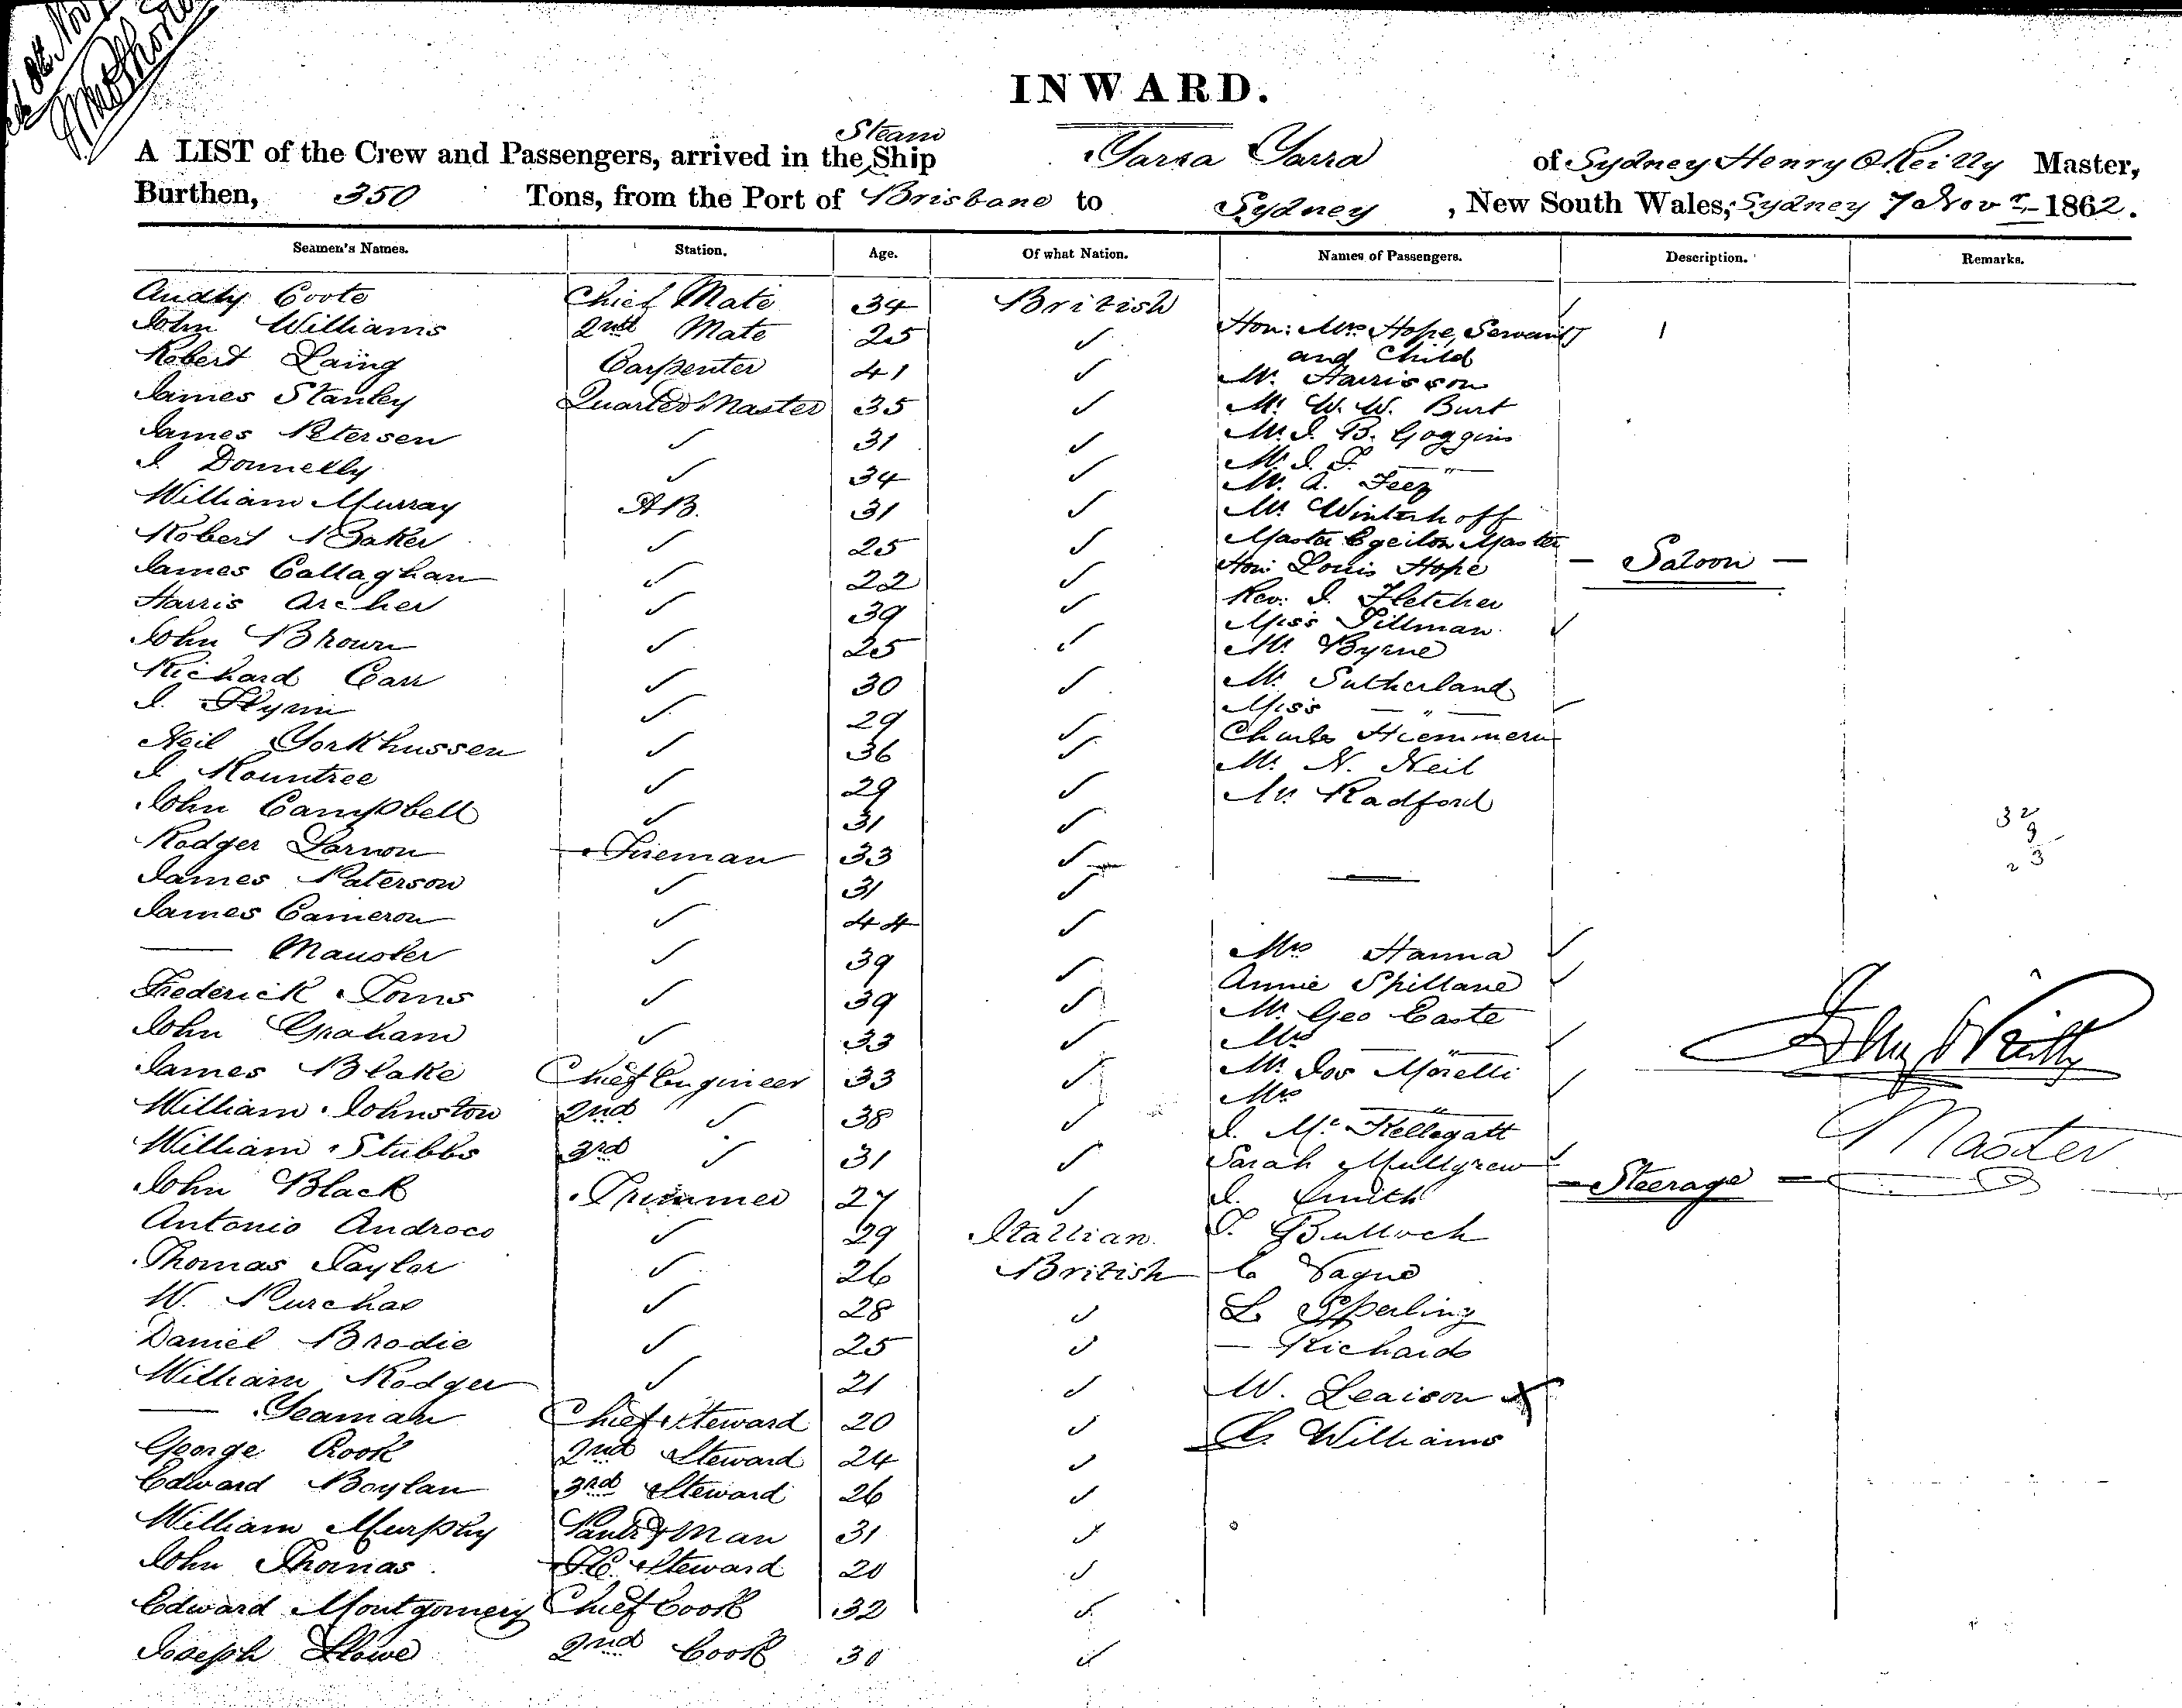 INWARD.
Steam
A LIST of the Crew and Passengers, arrived in the Ship Yarra Yarra of Sydney Henry O'Reilly Master,
Burthen, 350 Tons, from the Port of Brisbane to Sydney, New South Wales, Sydney 7 Novr 1862.
Seamen's Names. Station. Age. Of what Nation. Names of Passengers. Description. Remarks.
Audly Coote Chief Mate 34 British
John Williams 2nd Mate 25 ✓ Hon: Mrs Hope, Servant
and Child
Robert Laing Carpenter 41 ✓ Mr. Harrisson
James Stanley Quarter Master 35 ✓ Mr. W. W. Burt
James Petersen ✓ 31 ✓ Mr. J. B. Goggins
J. Donnelly ✓ 34 ✓ Mr. J. F. — " —
Mr. A. Feez
William Murray AB. 31 ✓ Mr Winterhoff
Robert Baker ✓ 25 ✓ Master Egerton Master
James Callaghan ✓ 22 ✓ Hon: Louis Hope — Saloon —
Harris Archer ✓ 39 ✓ Rev: J. Fletcher
Miss Tillman ✓
John Brown ✓ 25 ✓ Mr. Byrne
Richard Carr ✓ 30 ✓ Mr. Sutherland
J. Flynn ✓ 29 ✓ Miss — " — ✓
Neil Yorkhussen ✓ 36 ✓ Charles
J Rountree ✓ 29 ✓ Mr. N. Neil
John Campbell ✓ 31 ✓ Mr. Radford
Rodger Fireman 33 ✓
32
9
23
James Paterson ✓ 31 ✓
James Cameron ✓ 44 ✓
— ✓ 39 ✓ Mrs Hanna ✓
Annie Spillane ✓
Frederick Toms ✓ 39 ✓ Mr. Geo Caste
John Graham ✓ 33 ✓ Mrs — " — ✓
James Blake Chief Engineer 33 ✓ Mr. Jos Morelli
William Johnston 2nd ✓ 38 ✓ Mrs — " — ✓
J. Mc
William Stubbs 3rd ✓ 31 ✓ Sarah Mullgrew ✓
John Black Trimmer 27 ✓ J. Smith — Steerage —
Master
Antonio Androco ✓ 29 Itallian T. Bulloch
Thomas Taylor ✓ 26 British C
W. Purchas ✓ 28 ✓ L Sperling
Daniel Brodie ✓ 25 ✓ — Richards
William Rodger ✓ 21 ✓ W. Leaison X
— Seaman Chief Steward 20 ✓ C. Williams
George Rook 2nd Steward 24 ✓
Edward Boylan 3rd Steward 26 ✓
William Murphy Pantryman 31 ✓
John Thomas Steward 20 ✓
Edward Montgomery Chief Cook 32 ✓
Joseph 2nd Cook 30 ✓